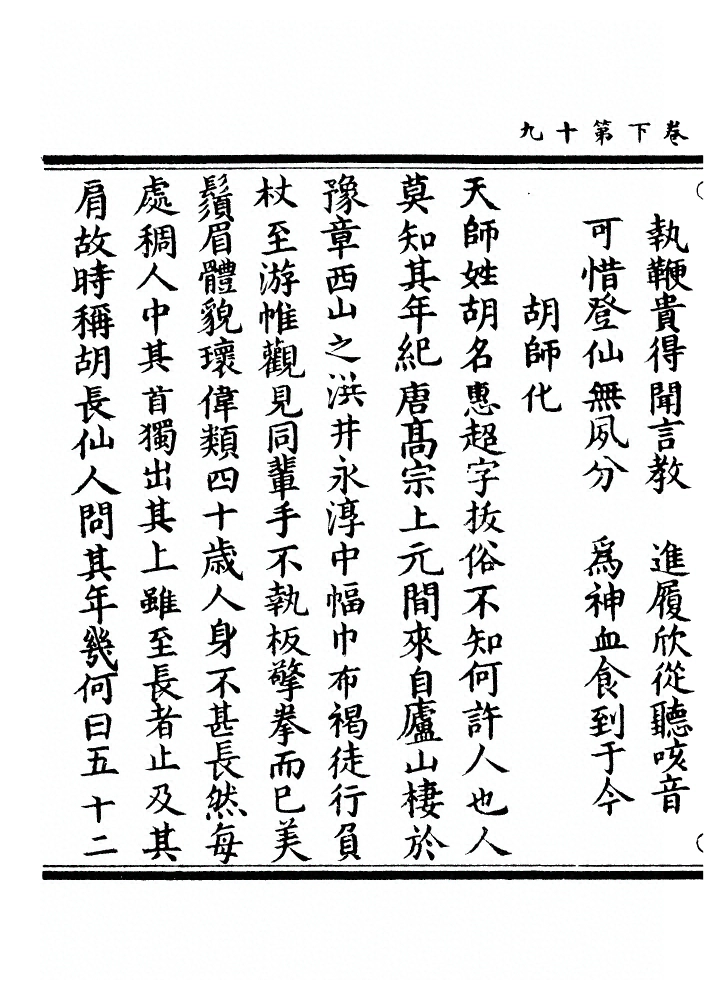 卷下第十九
執鞭貴得聞言教　進履欣從聽咳音
可惜登仙無夙分　爲神血食到于今
胡師化
天師姓胡名惠超字拔俗不知何許人也人
莫知其年紀唐髙宗上元間來自廬山棲於
豫章西山之洪井永淳中幅巾布褐徒行負
杖至游帷觀見同輩手不執板擎拳而巳美
鬚眉體貌瓌偉類四十歳人身不甚長然每
處稠人中其首獨出其上雖至長者止及其
肩故時稱胡長仙人問其年㡬何曰五十二